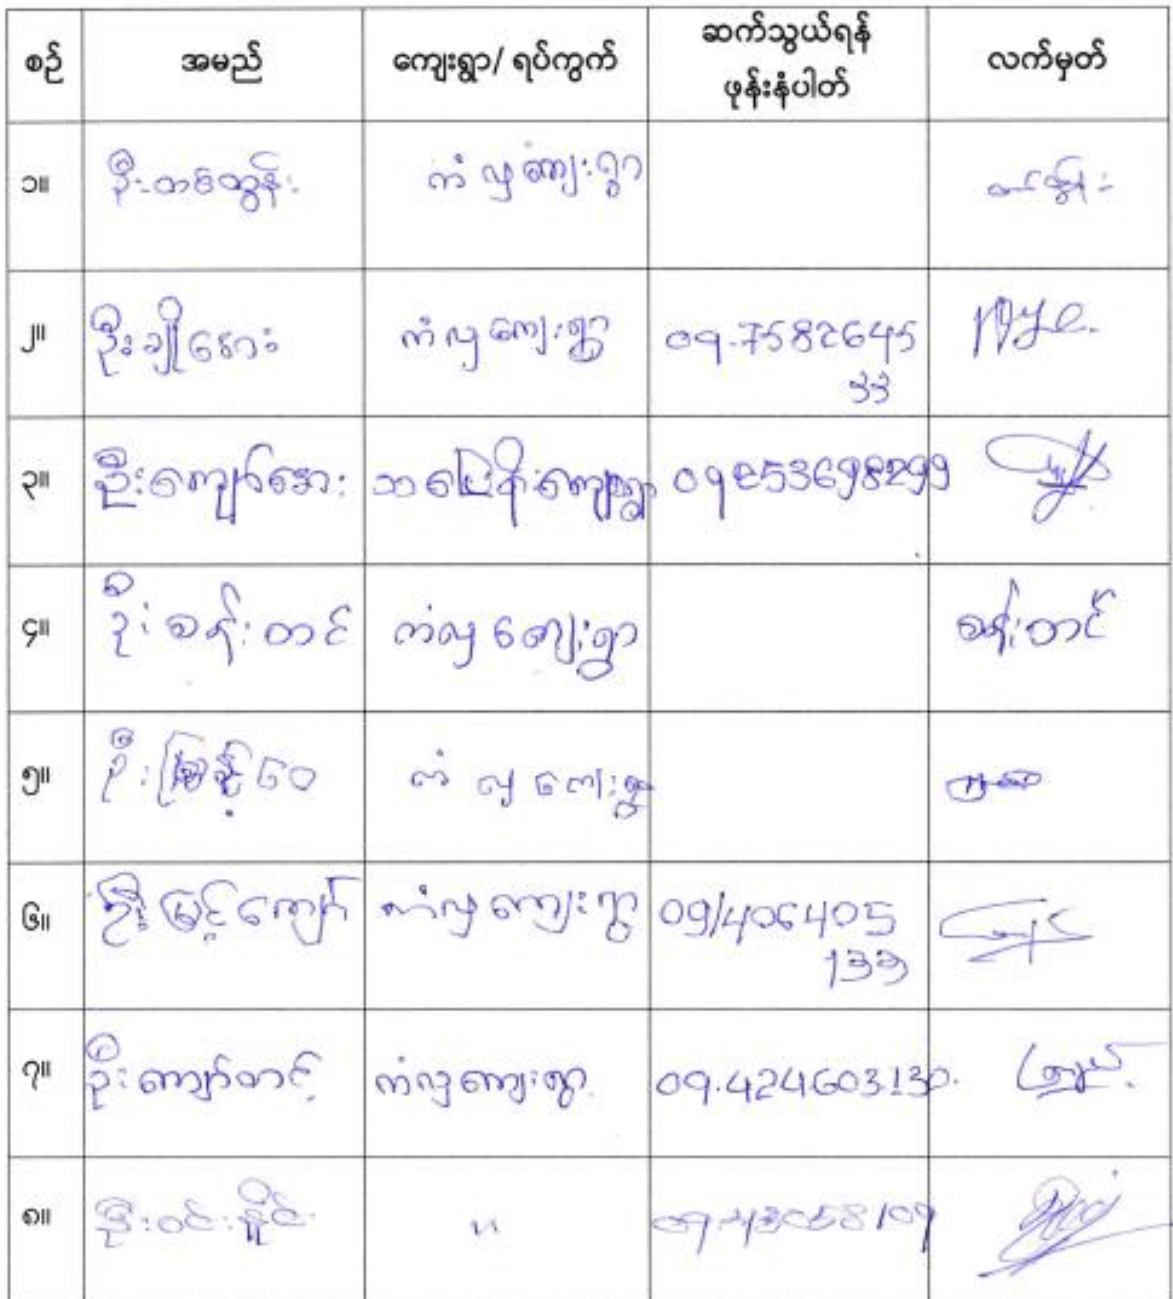 စဉ် အမည် ကျေးရွာ/ ရပ်ကွက် ဆက်သွယ်ရန် ဖုန်းနံပါတ် လက်မှတ်
၁။ ဦးတစ်ထွန်း ကံလှကျေးရွာ
၂။ ဦးချိုအေး ကံလှကျေးရွာ 09-7582645
33
၃။ ဦးကျော်အေး ကျေးရွာ 09253698299
၄။ ဦးစန်းတင် ကံလှကျေးရွာ စန်းတင်
၅။ ဦးမြင့်ဝေ ကံလှကျေးရွာ
၆။ ဦးမြင့်ကျော် ကံလှကျေးရွာ 09/406405
133
၇။ ဦးကျော်တင့် ကံလှကျေးရွာ 09.424603130.
၈။ ဦးဝင်းနိုင် "